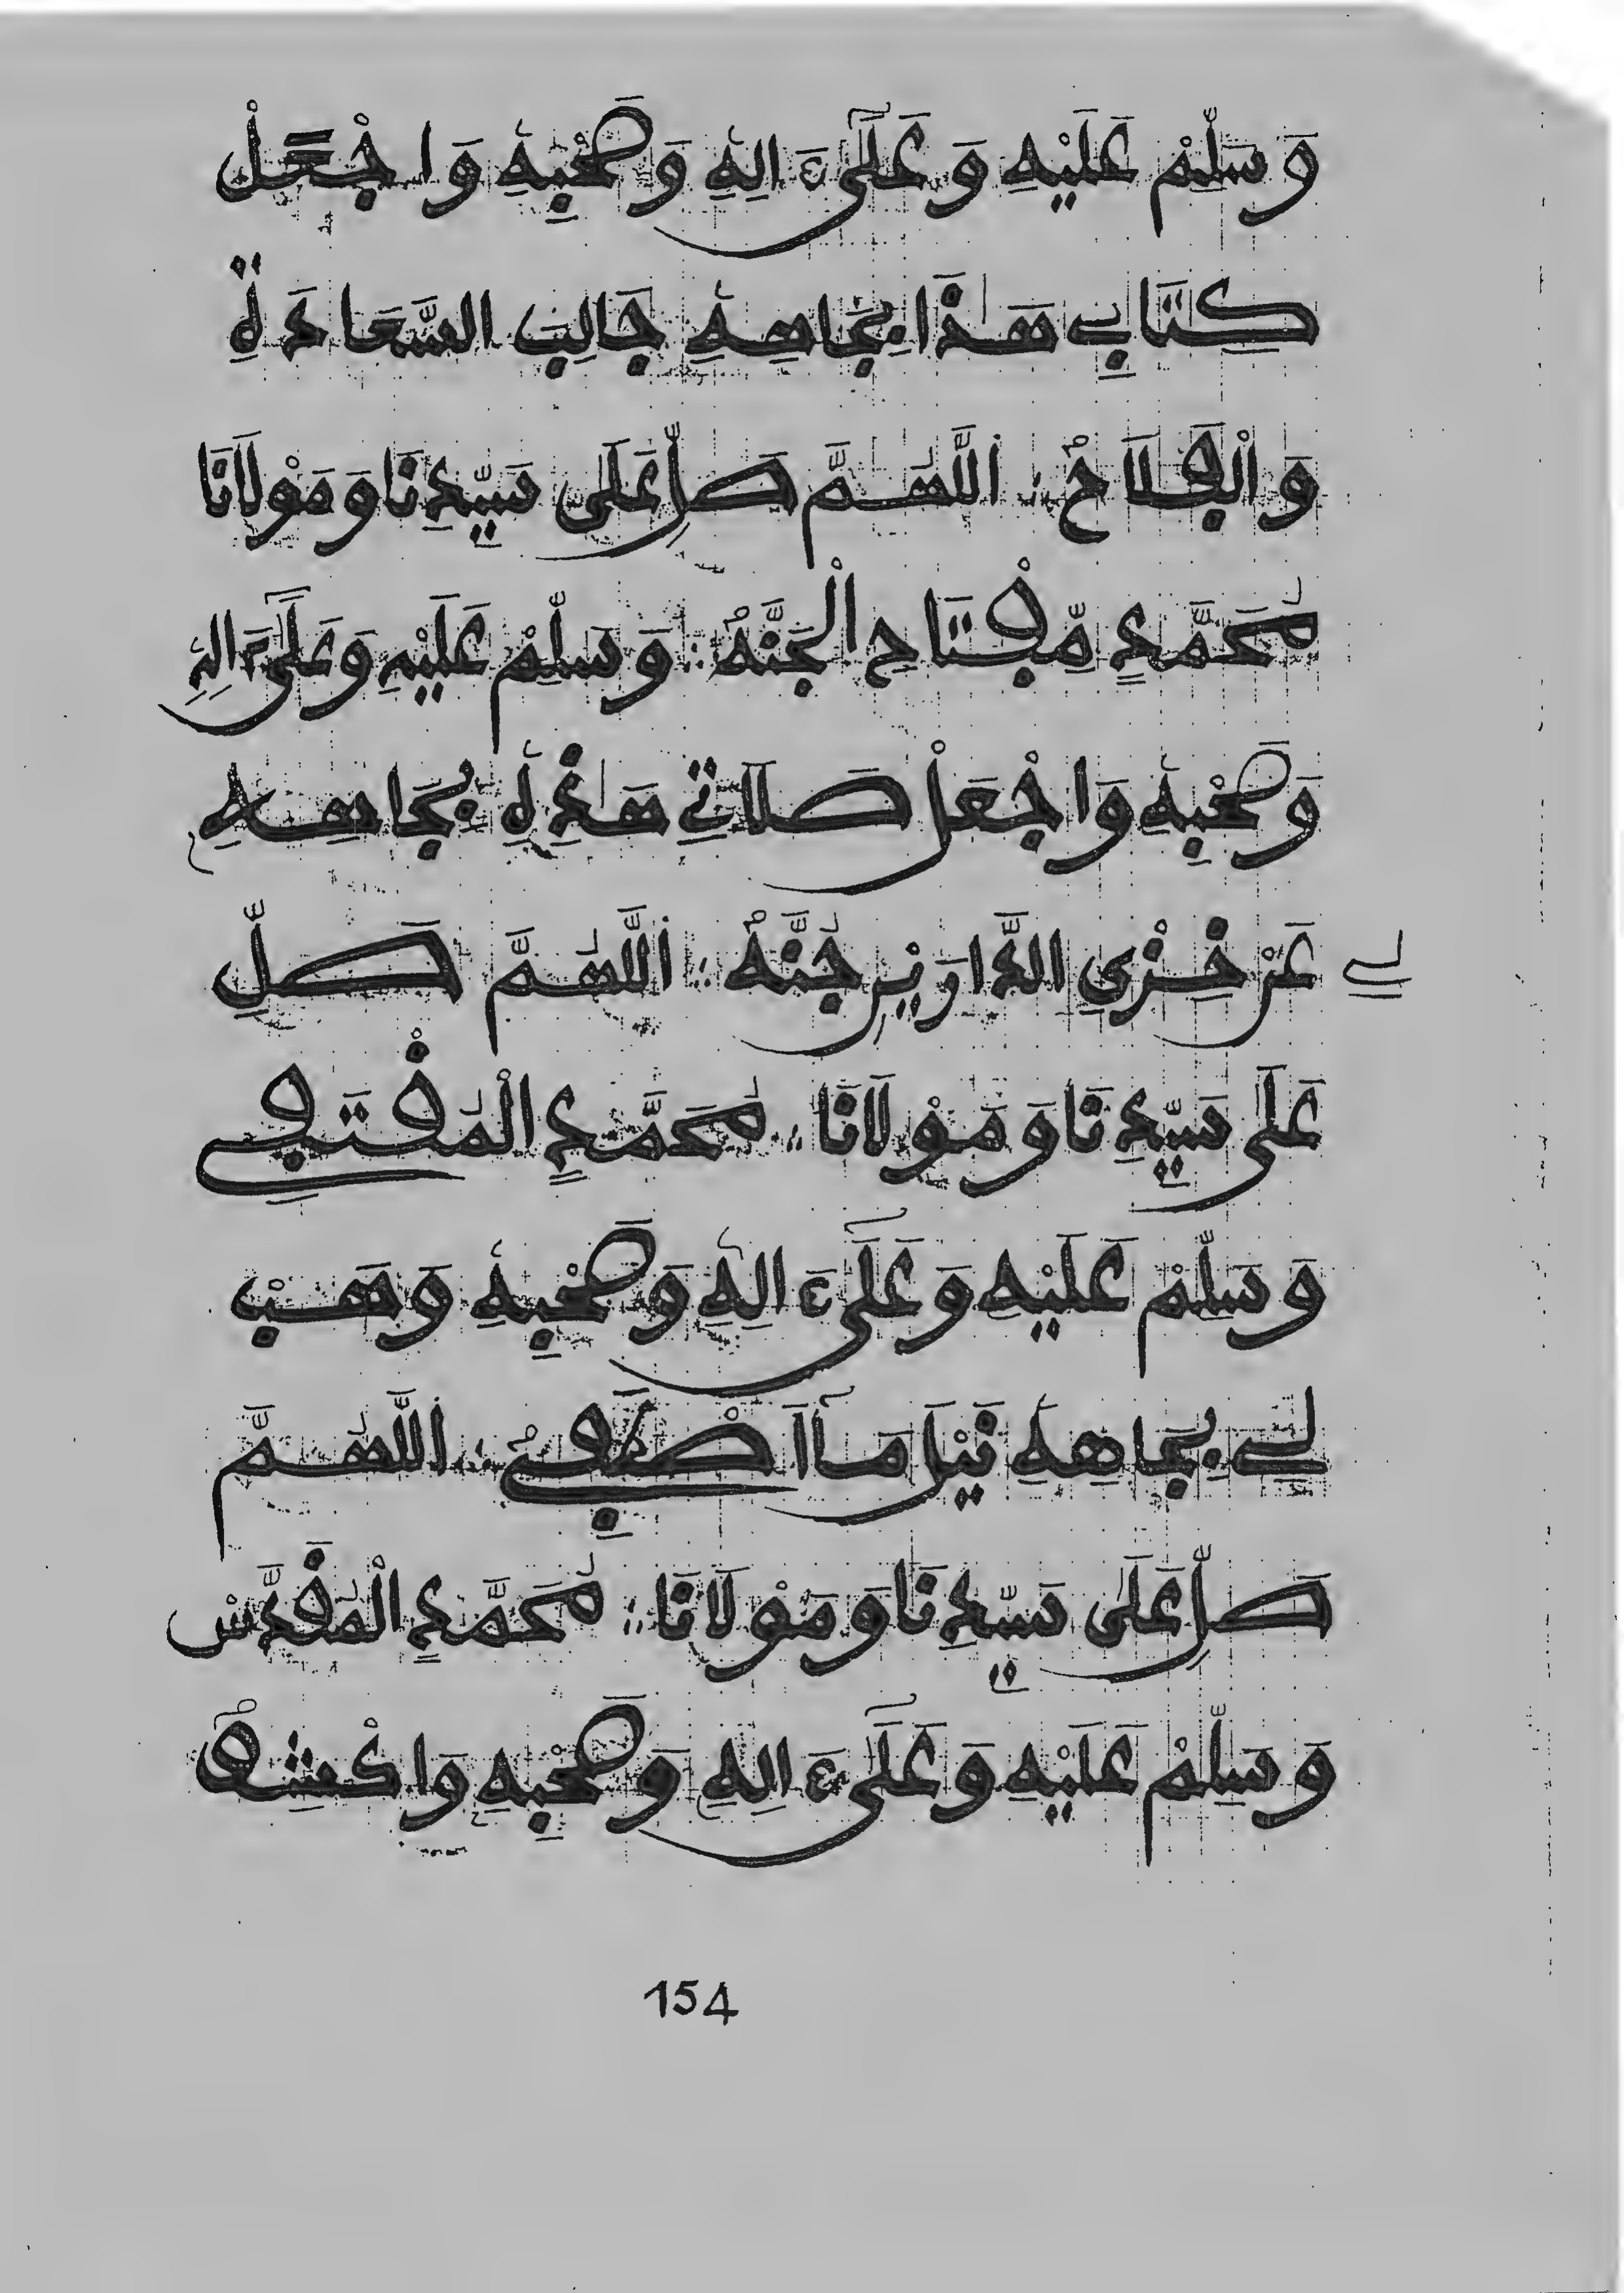 وَسَلِّمْ عَلَيْهِ وَعَلَىٰٓ ءَالِهِ وَصَحْبِهِ وَاجْعَلْ
كِتَابِي هَٰذَا بِجَاهِهِ جَالِبَ السَّعَادَةِ
وَالْفَلَاحْ اللَّهُمَّ صَلِّ عَلَى سَيِّدِنَا وَمَوْلَانَا
مُحَمَّدٍ مِّفْتَاحِ الْجَنَّهْ وَسَلِّمْ عَلَيْهِ وَعَلَىٰٓ ءَالِهِ
وَصَحْبِهِ وَاجْعَلْ صَلَاتِي هَٰذِهِ بِجَاهِهِ
لِي عَنْ خِزْيِ الدَّارَيْنِ جُنَّهْ اللَّهُمَّ صَلِّ
عَلَى سَيِّدِنَا وَمَوْلَانَا مُحَمَّدٍ الْمُقْتَفِي
وَسَلِّمْ عَلَيْهِ وَعَلَىٰٓ ءَالِهِ وَصَحْبِهِ وَهَبْ
لِي بِجَاهِهِ نَيْلَ مَآ أَصْطَفِي اللَّهُمَّ
صَلِّ عَلَى سَيِّدِنَا وَمَوْلَانَا مُحَمَّدٍ الْمُقَدَّسِ
وَسَلِّمْ عَلَيْهِ وَعَلَىٰٓ ءَالِهِ وَصَحْبِهِ وَاكْشِفْ
154